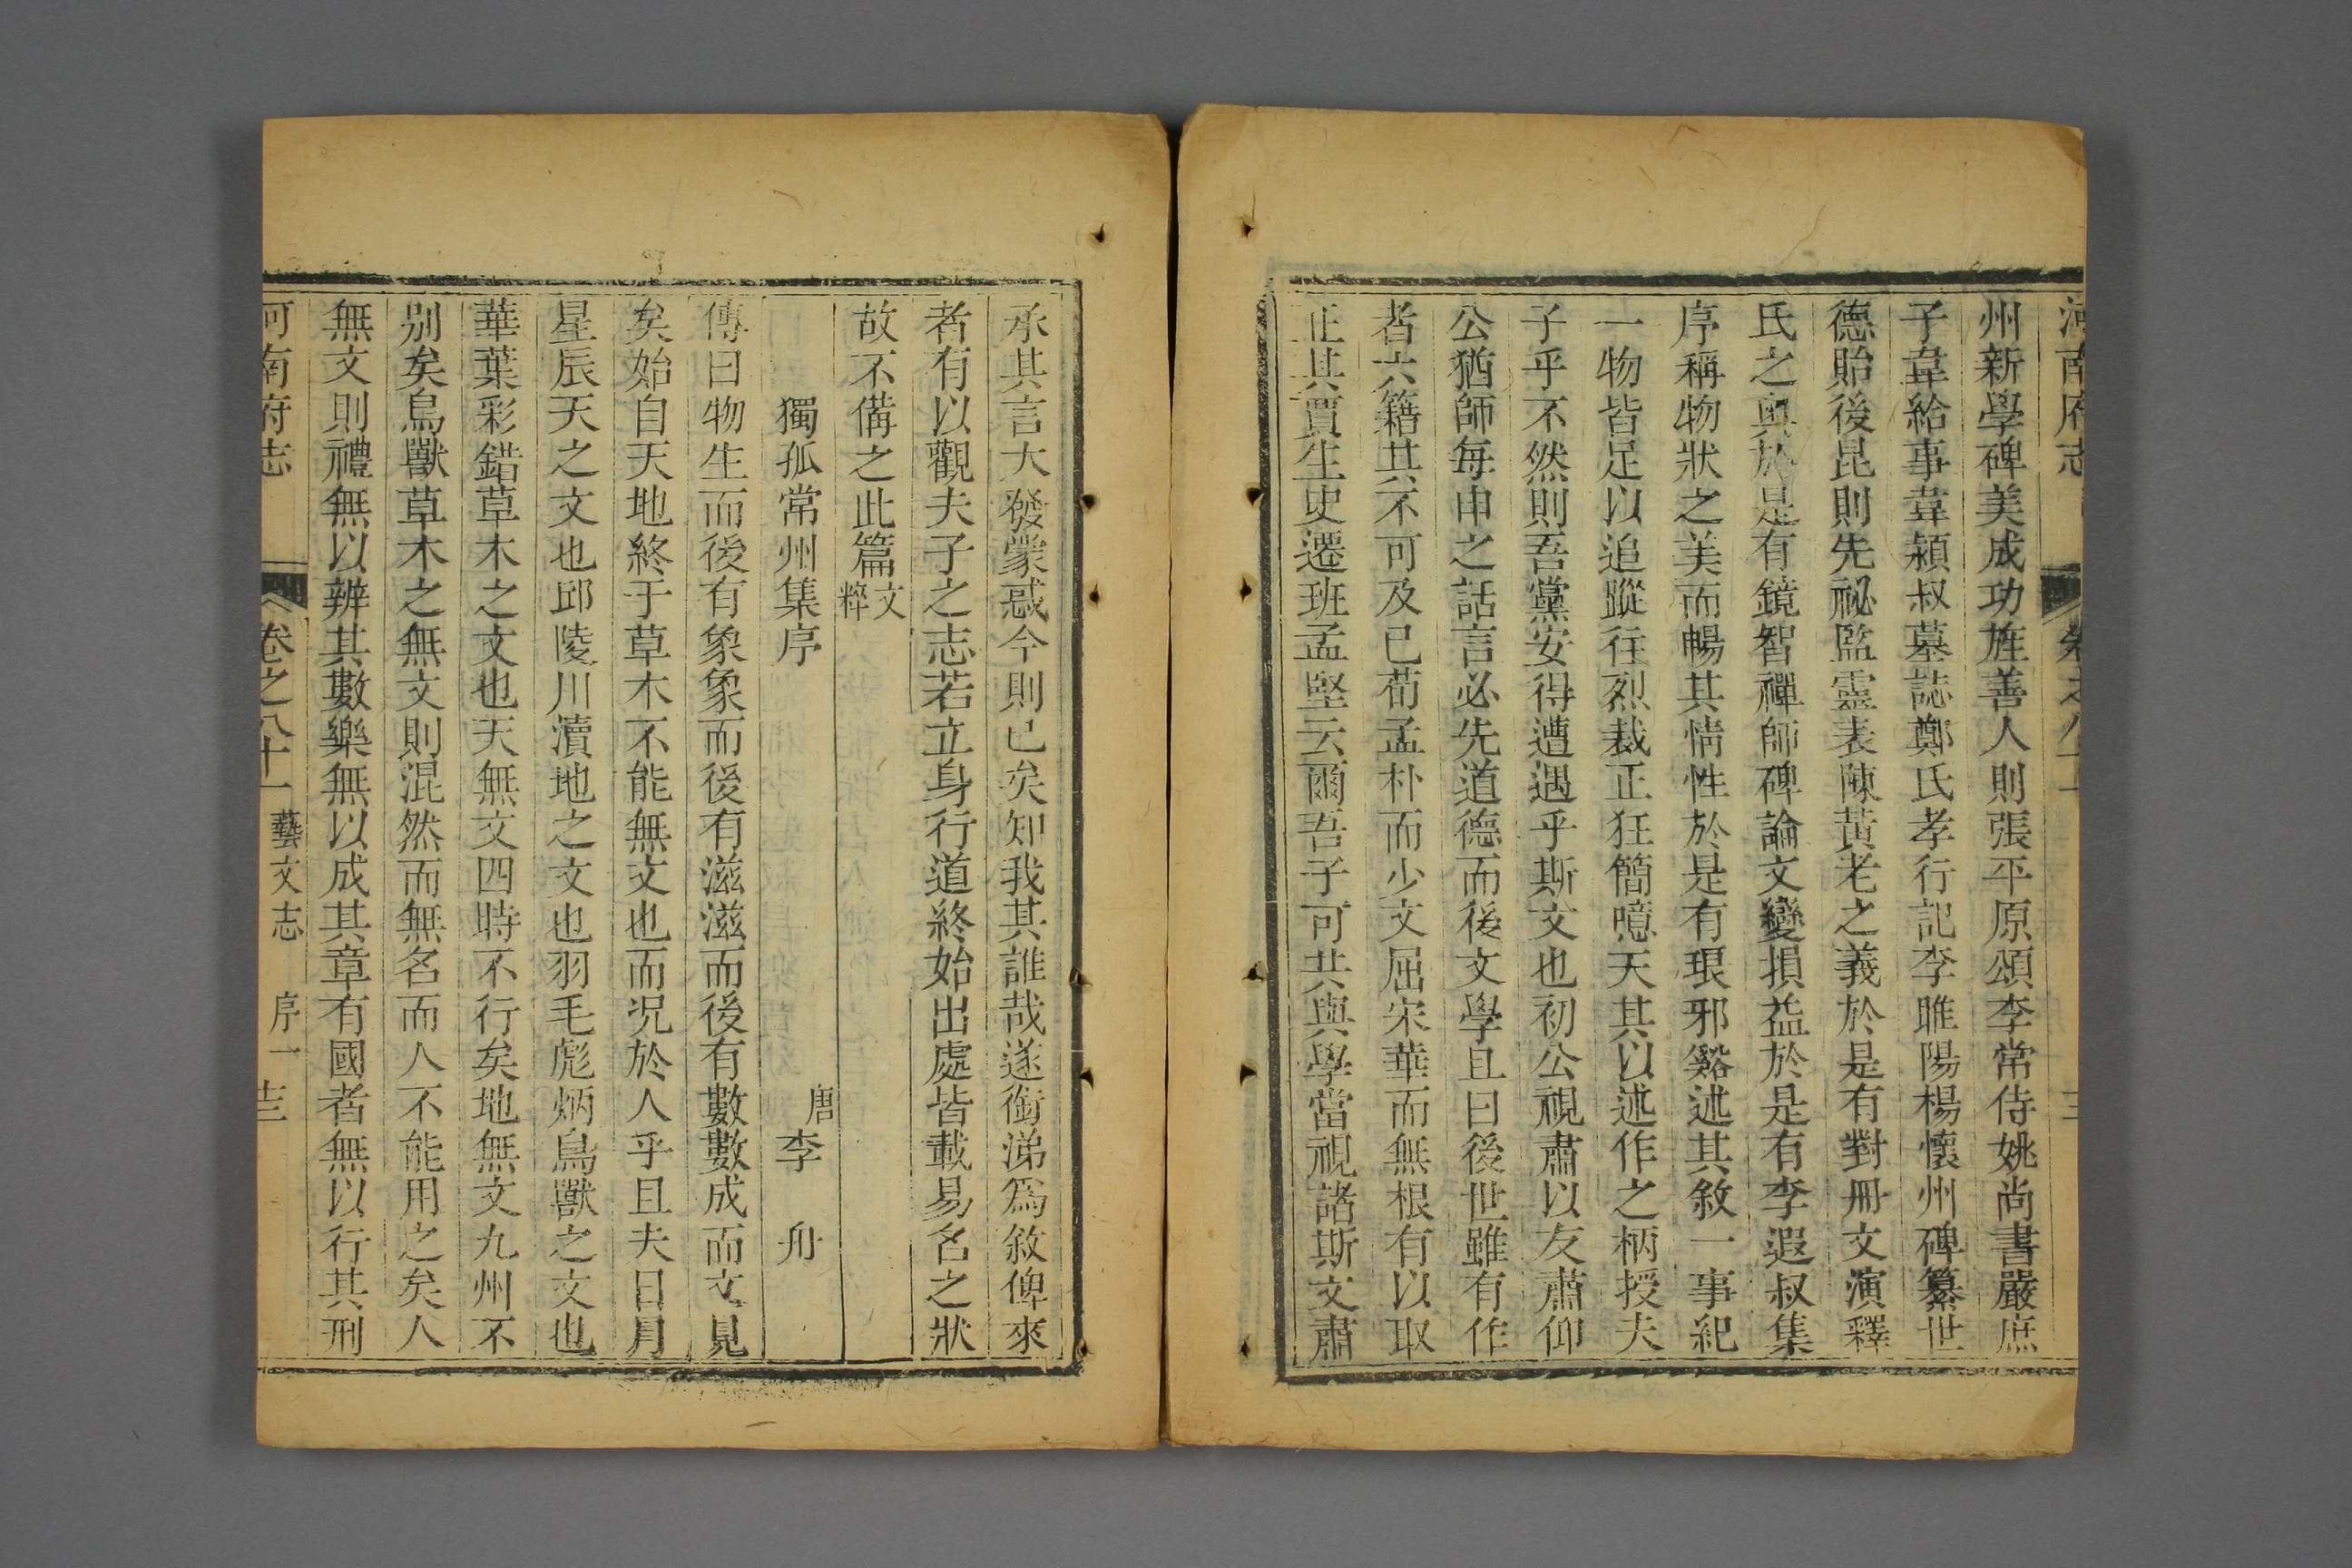 河南府志 卷之八十一
州新學碑美成功旌善人則張平原頌李常侍姚尚書嚴庶
子韋給事韋潁叔墓誌鄭氏孝行記李睢陽楊懷州碑纂世
德貽後昆則先祕監靈表陳黃老之義於是有對冊文演釋
氏之奧於是有鏡智禪師碑論文變損益於是有李遐叔集
序稱物狀之美而暢其情性於是有琅邪谿述其敘一事紀
一物皆足以追蹤往烈裁正狂簡噫天其以述作之柄授夫
子乎不然則吾黨安得遭遇乎斯文也初公視肅以友肅仰
公猶師每申之話言必先道德而後文學且曰後世雖有作
者六籍其不可及已荀孟朴而少文屈宋華而無根有以取
正其賈生史遷班孟堅云爾吾子可共與學當視諸斯文肅
承其言大發蒙惑今則已矣知我其誰哉遂銜涕爲敘俾來
者有以觀夫子之志若立身行道終始出處皆載易名之狀
故不備之此篇文粹
獨孤常州集序
唐李舟
傳曰物生而後有象象而後有滋滋而後有數數成而文見
矣始自天地終于草木不能無文也而况於人乎且夫日月
星辰天之文也邱陵川瀆地之文也羽毛彪炳鳥獸之文也
華葉彩錯草木之文也天無文四時不行矣地無文九州不
别矣鳥獸草木之無文則混然而無名而人不能用之矣人
無文則禮無以辨其數樂無以成其章有國者無以行其刑
河南府志 卷之八十一 藝文志 序一 十三